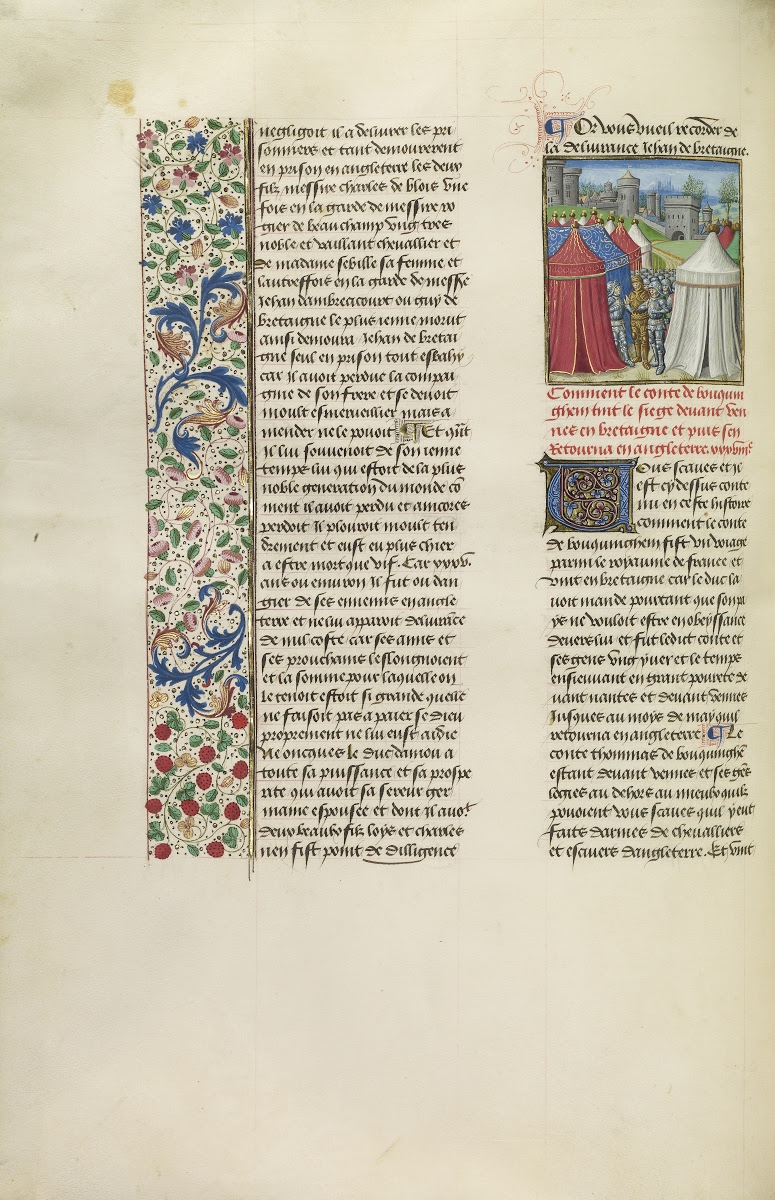 negligoit il a delivrer les pri
sonniers et tant demourerent
en prison en angleterre les deux
filz messire charles de blois une
fois en la garde de messire ro
gier de beauchamp ung tres
noble et vaillant chevallier et
de madame sebille sa femme et
lautreffois en la garde de messire
Jehan dambrecicourt ou guy de
bretaigne le plus ienne morut
ainsi demoura Jehan de bretai
gne seul en prison tout esbahy
car il avoit perdue la compai
gnie de son frere et se devoit
moult esmerveillier mais a
mender ne le povoit Et qnt
il lui souvenoit de son ienne
temps lui qui estoit de la plus
noble generation du monde co
ment il avoit perdu et aincores
perdoit Il plouroit moult ten
drement et eust eu plus chier
a estre mort que vif. Car xxxv.
ans ou environ il fut ou dan
gier de ses ennemis en angle
terre et ne lui apparoit delivrace
de nul coste car ses amis et
ses prouchains seslongnoient
et la somme pour laquelle on
le tenoit estoit si grande quelle
ne faisoit pas a paier se dieu
proprement ne lui eust aidie
Ne oncques le duc daniou a
toute sa puissance et sa prospe
rite qui avoit sa sereur ger
maine espousee et dont il avoit
deux beaux filz loys et charles
nen fist point de dilligence
Or vous vueil recorder de
la delivrance Jehan de bretaigne.
Comment le conte de bouquin
ghem tint le siege devant ven
nes en bretaigne et puis sen
Retourna en angleterre.
Vous scaves et il
est cy dessus conte
nu en ceste histoire
comment le conte
de bouquinghem fist un voiage
parmi le royaume de france et
vint en bretaigne car le duc la
voit mande pourtant que son pa
ys ne vouloit estre en obeyssance
devers lui et fut ledit conte et
ses gens ung yver et le temps
ensieuvant en grant povrete de
vant nantes et devant vennes
Jusques au moys de may quil
retourna en angleterre Le
conte thommas de bouquinghem
estant devant vennes et ses gens
logies au dehors au mieulx quilz
povoient vous scaves quil y eut
faits darmes de chevalliers
et escuiers dangleterre. Et vint